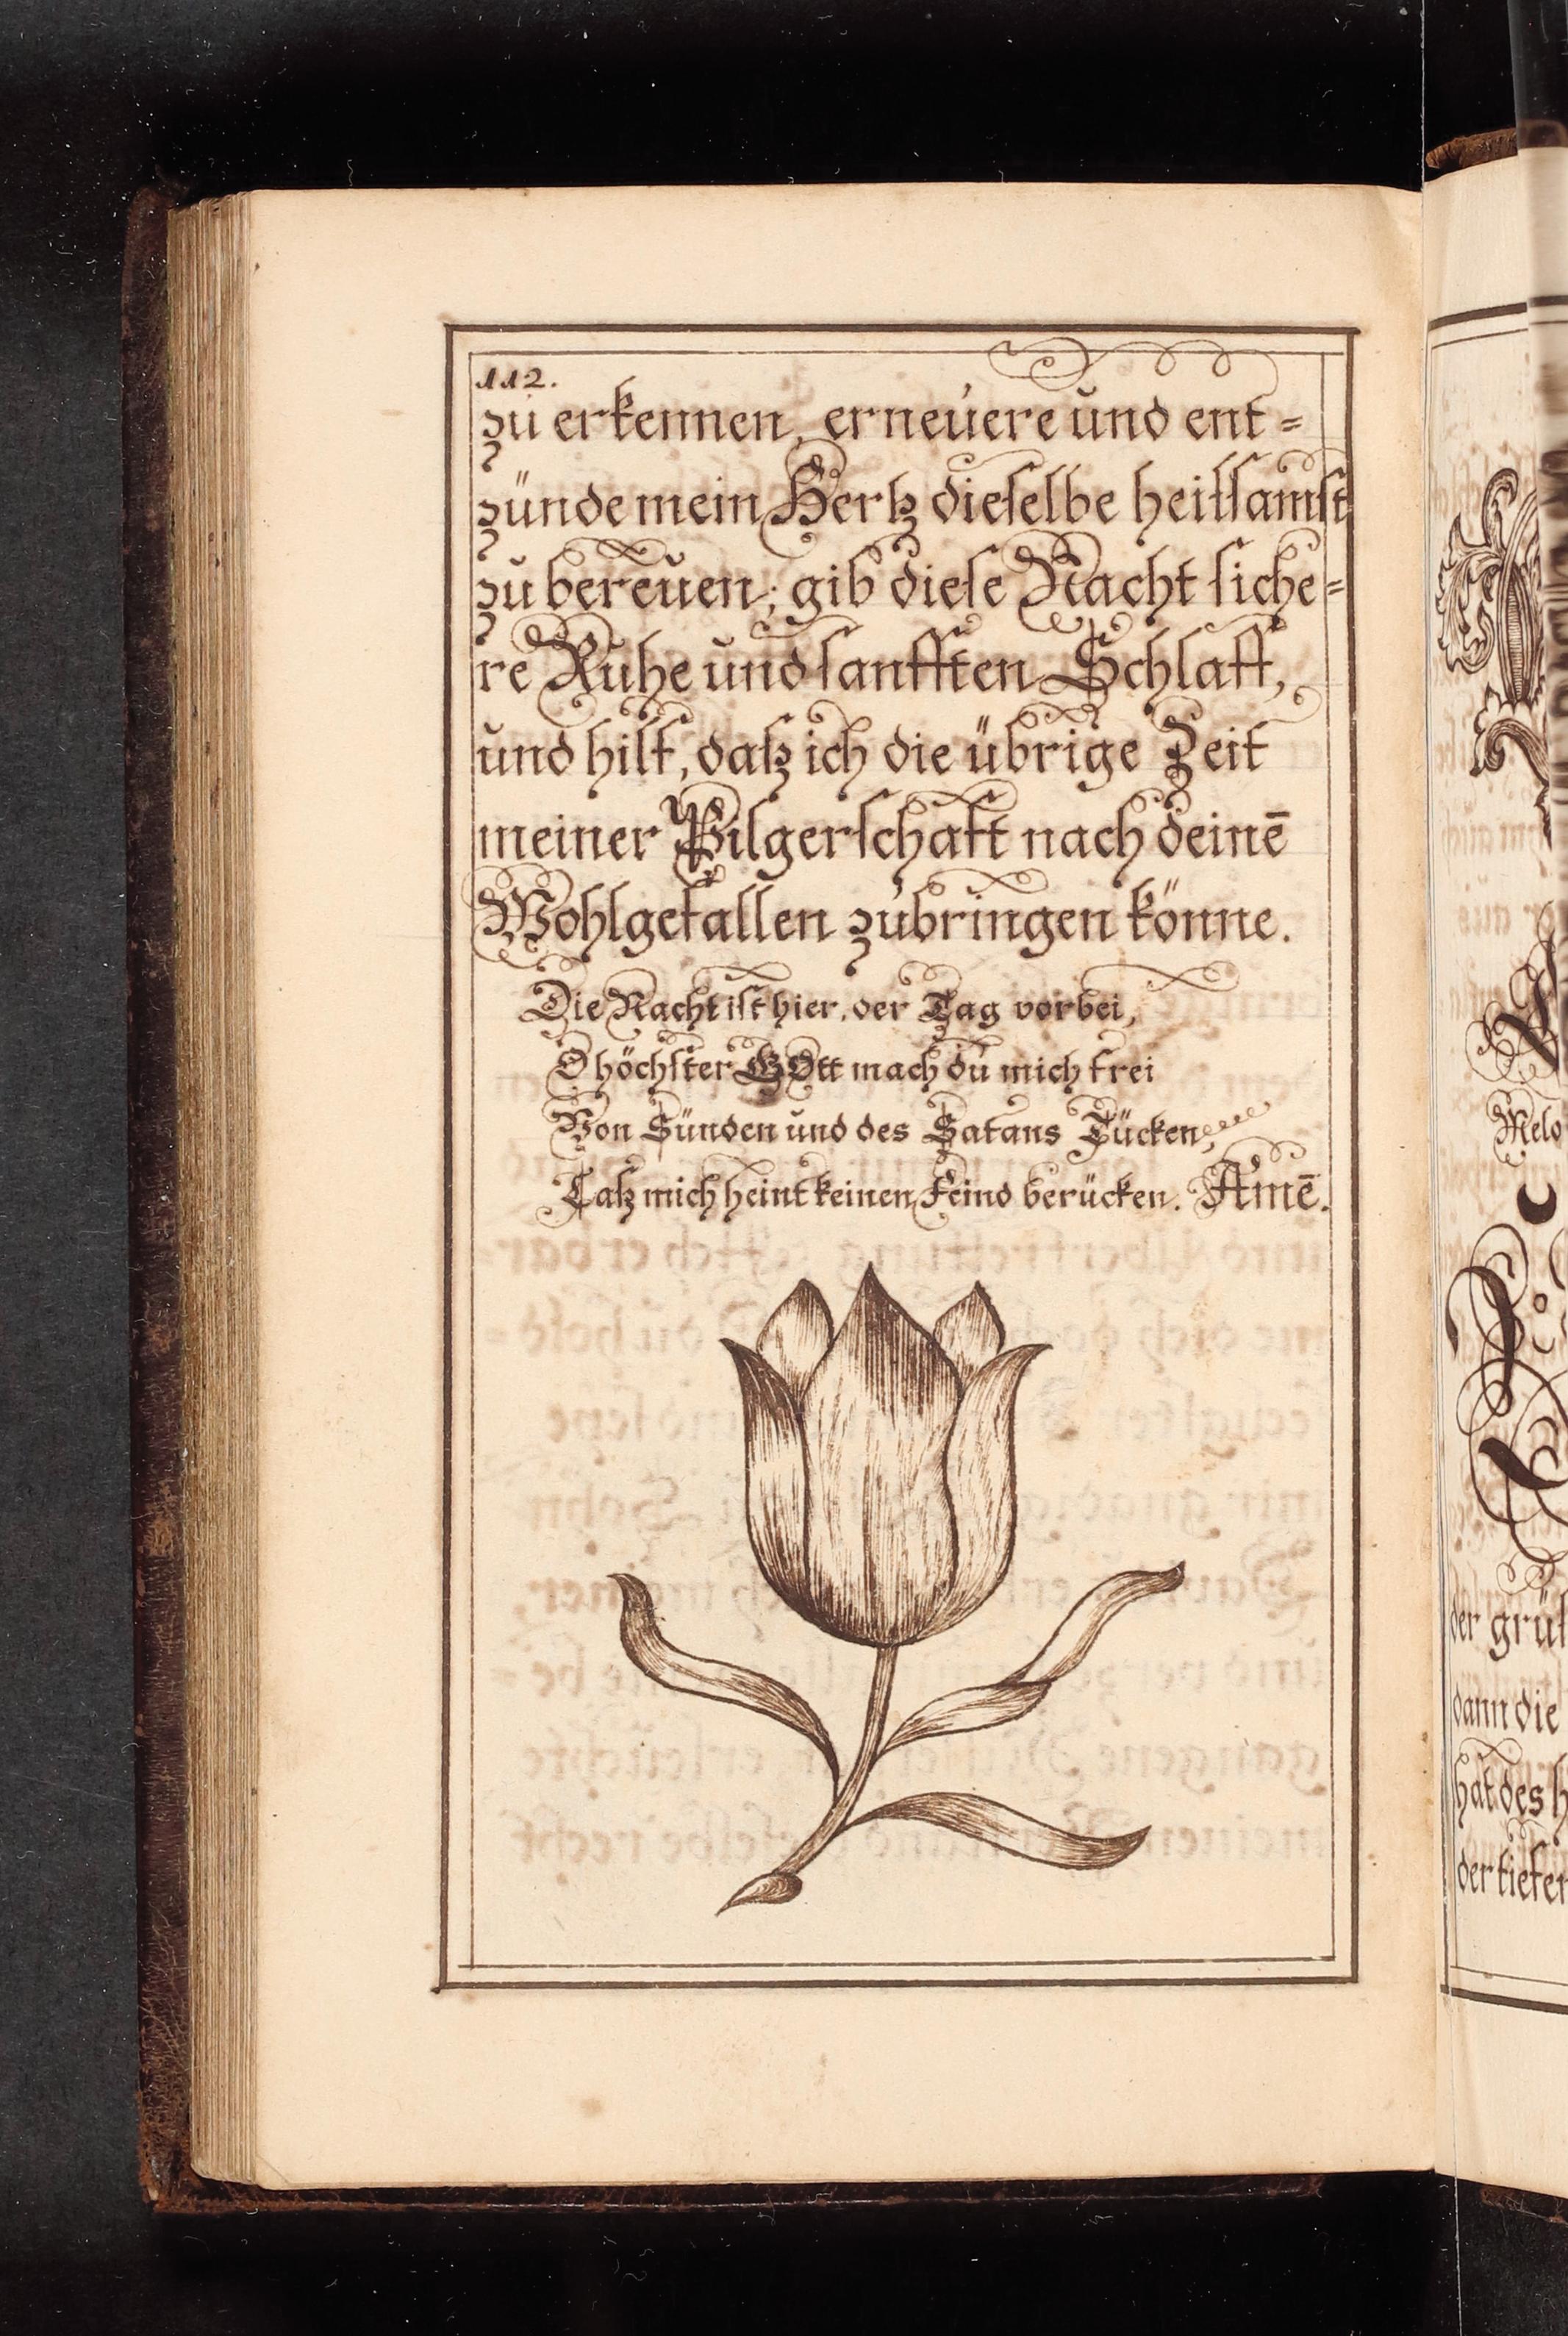 112.
zu erkennen, erneuere und ent=
zünde mein Hertz dieselbe heilsamst
zu bereuen; gib diese Nacht siche=
re Ruhe und sanfften Schlaff,
und hilf, daß ich die übrige Zeit
meiner Pilgerschaft nach deinē
Wohlgefallen zubringen könne.
Die Nacht ist hier, der Tag vorbei,
O höchster GOtt mach du mich frei
Von Sünden und des Satans Tücken,
Laß mich heint keinen Feind berücken. Amē.
Melo
der grü
dann die
hat des h
der tiefen